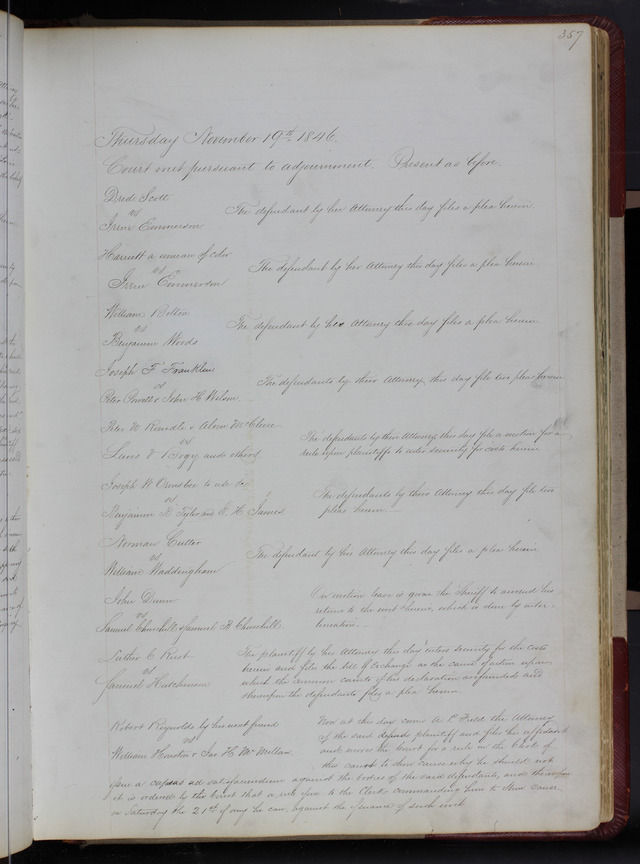 357
Thursday November 19th 1846.
Court met pursuant to adjournment. Present as before.
Dred Scott
vs
Irene Emmerson
The defendant by her Attorney this day files a plea herein.
Harriett a woman of color
vs
Irene Emmerson
The defendant by her Attorney this day files a plea herein
William Bolton
vs
Benjamin Woods
The defendant by his Attorney this day files a plea herein
Joseph F Franklin
vs
Peter Powell & John H Wilson.
The defendants by their Attorney, this day file two pleas herein
Peter W Randle & Alvin McClane
vs
Louis V Bogy and others
The defendants by their Attorney this day file a motion for a
rule upon plaintiffs to enter security for costs herein
Joseph W Ormsbee to use &c
vs
Benjamin R Tyler and E. H. James
The defendants by their Attorney this day file two
pleas herein.
Norman Cutter
vs
William Waddingham
The defendant by his Attorney this day files a plea herein
John Dunn
vs
Samuel Churchill & Samuel B Churchill.
On motion leave is given the Sheriff to amend his
return to the writ herein, which is done by inter-
lineation.
Luther C Rust
vs
Samuel Hutchinson
The plaintiff by his Attorney this day enters security for the costs
herein and files the bill of Exchange as the cause of action upon
which the common counts of his declaration are founded and
thereupon the defendant files a plea herein.
Robert Reynolds by his next friend
vs
William Houston & Jas H McMillan.
Now at this day came A P Field the Attorney
of the said plaintiff and files his affidavit
and moves the Court for a rule on the Clerk of
this court to show cause why he should not
issue a capias ad satisfaciendum against the bodies of the said defendants, and thereupon
it is ordered by the Court that a rule issue to the Clerk commanding him to show cause,
on Saturday the 21st if any he can, against the issuance of such writ